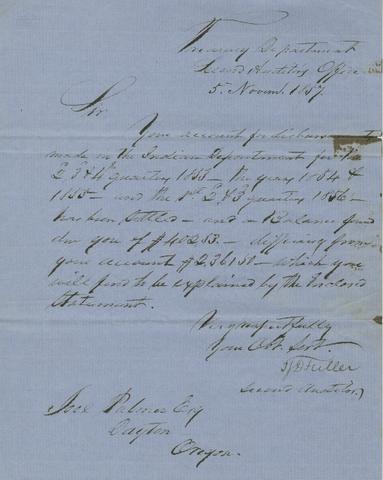 Treasury Department
Second Auditor's Office
5. Novem. 1857.
Sir
Your account for disbursem
made in the Indian Department for the
2d 3d & 4th quarters 1853 - the years 1854 &
1855 - and the 1st 2d & 3d quarters 1856 -
has been settled - and a Balance found
due you of $402.53 - differing from
your account $2,361.50 - which you
will find to be explained by the Enclosed
Statement.
Very respectfully
Your Obt. Servt.
Fuller
Second Auditor
Joel Palmer Esq
Dayton
Oregon.